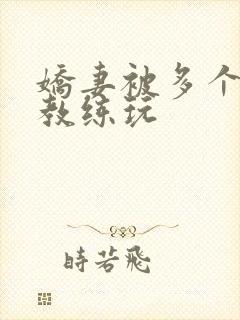 嬌妻被多个
教练玩
時若飛